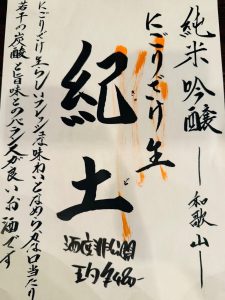 純米吟醸 ―和歌山―
にごりざけ生
紀土
きっど
にごりざけ生らしいフレッシュな味わいとなめらかな口当たり
若干の炭酸と旨味とのバランスが良いお酒です